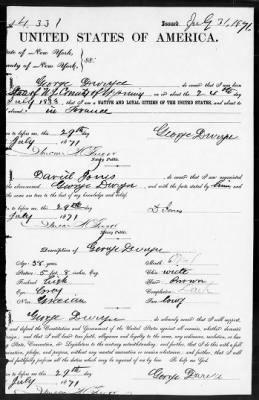 Issued July 31, 1871.
UNITED STATES OF AMERICA.
State of New York,
County of New York. } ss:
I, George Dwyer do swear that I was born
in County of on or about the 24th day
July 1833 that I am a NATIVE AND LOYAL CITIZEN OF THE UNITED STATES, and
about in France
Sworn to before me, this 29th day
July 1871
George Dwyer
Notary Public.
I, David Jones do swear that I am acquainted
the above-named George Dwyer and with the facts stated by him and
same are true to the best of my knowledge and belief.
Sworn to before me, this 29th day
July 1871
D Jones
Notary Public.
Description of George Dwyer
Age: 38 years.
Stature: 5 feet 8 inches, Eng.
Forehead: high
Eyes: Grey
Nose: Grecian
Mouth:
Chin:
Hair: brown
Complexion:
Face: long
I, George Dwyer do solemnly swear that I will support,
and defend the Constitution and Government of the United States against all enemies, whether domestic
foreign; and that I will bear true faith, allegiance and loyalty to the same, any ordinance, resolution, or law
any State, Convention, or Legislature to the contrary notwithstanding; and further, that I do this with a full
pledge, and purpose, without any mental reservation or evasion whatsoever; and further, that I will
faithfully perform all the duties which may be required of me by law. So help me God.
Sworn to before me, this 29th day
July 1871
George Dwyer
Notary Public.